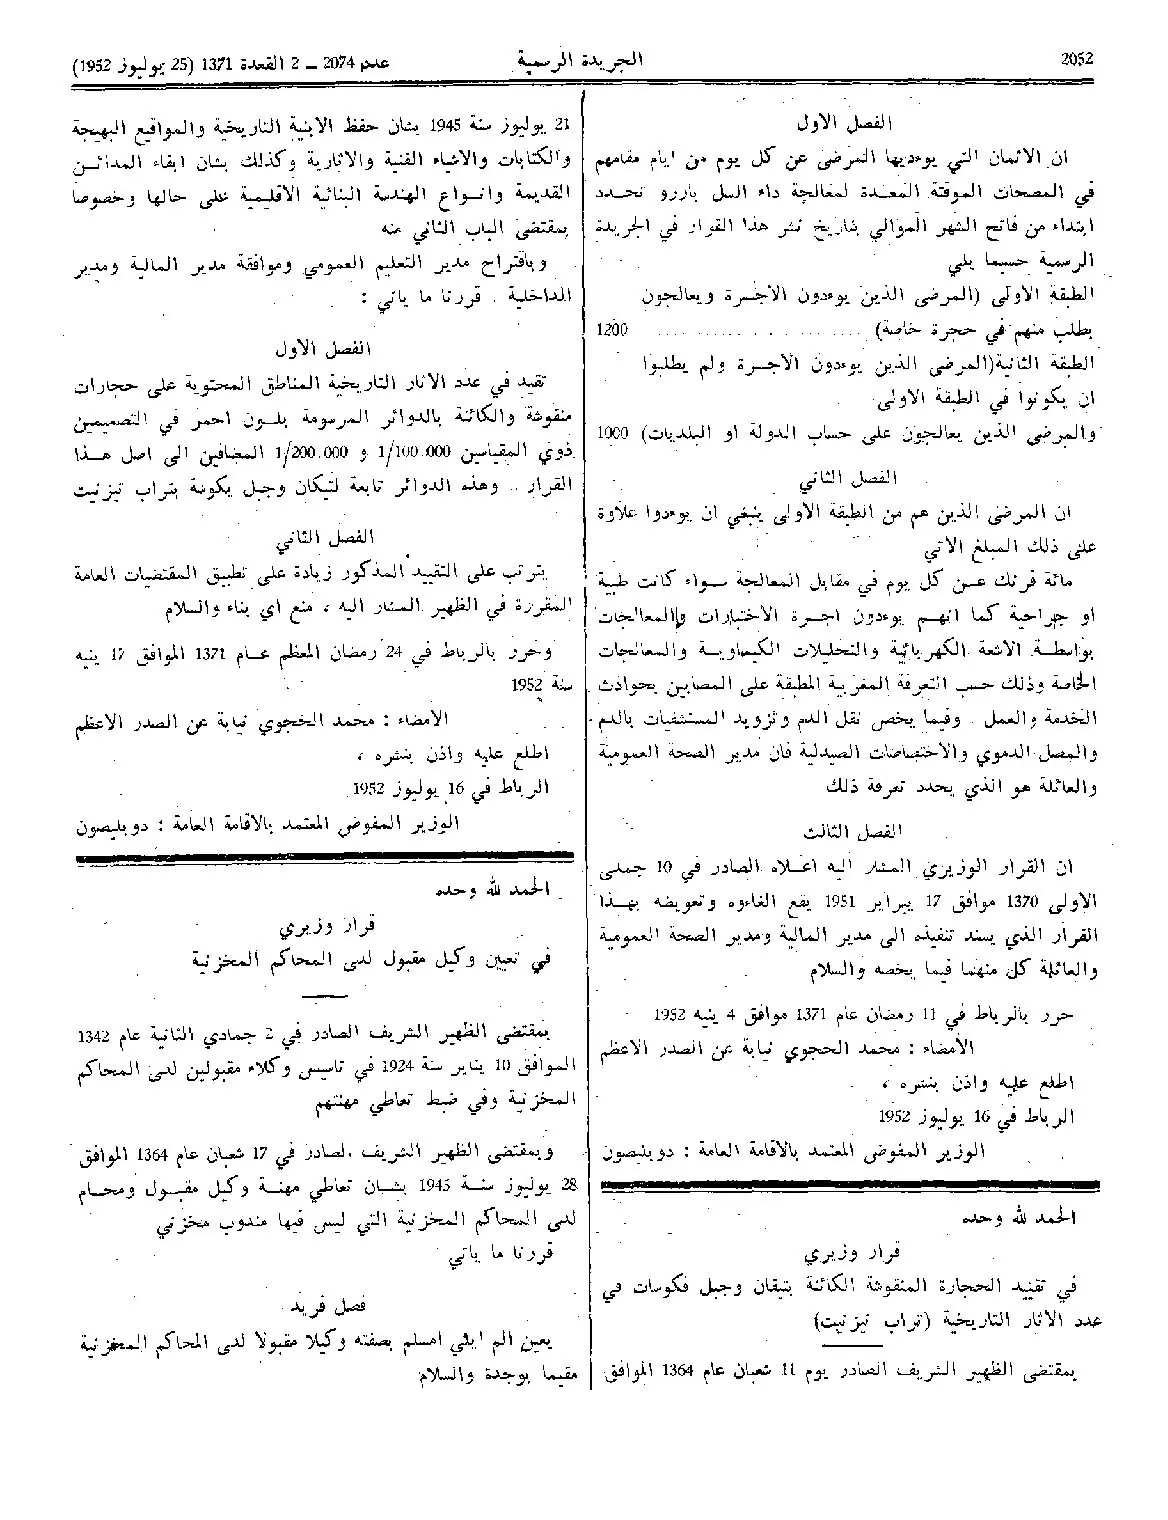 2052
الجريدة الرسمية
عدد 2074 ــ 2 القعدة 1371 (25 يوليوز 1952)
الفصل الاول
ان الاثمان التي يوءديها المرضى عن كل يوم من ايام مقامهم
في المصحات الموقتة المعدة لمعالجة داء السل بازرو تحدد
ابتداء من فاتح الشهر الموالي بتاريخ نشر هذا القرار في الجريدة
الرسمية حسبما يلي
الطبقة الاولى (المرضى الذين يوءدون الاجرة ويعالجون
بطلب منهم في حجرة خاصة) .................. 1200
الطبقة الثانية(المرضى الذين يوءدون الاجرة ولم يطلبوا
ان يكونوا في الطبقة الاولى
والمرضى الذين يعالجون على حساب الدولة او البلديات) 1000
الفصل الثاني
ان المرضى الذين هم من الطبقة الاولى ينبغي ان يوءدوا علاوة
على ذلك المبلغ الاتي
مائة فرنك عن كل يوم في مقابل المعالجة سواء كانت طبية
او جراحية كما انهم يوءدون اجرة الاختبارات والمعالجات
بواسطة الاشعة الكهربائية والتحليلات الكيماوية والمعالجات
الخاصة وذلك حسب التعرفة المغربية المطبقة على المصابين بحوادث
الخدمة والعمل . وفيما يخص نقل الدم وتزويد المستشفيات بالدم
والمصل الدموي والاختصاصات الصيدلية فان مدير الصحة العمومية
والعائلة هو الذي يحدد تعرفة ذلك
الفصل الثالث
ان القرار الوزيري المشار اليه اعلاه الصادر في 10 جمدى
الاولى 1370 موافق 17 يبراير 1951 يقع الغاءوه وتعويضه بهذا
القرار الذي يسند تنفيذه الى مدير المالية ومدير الصحة العمومية
والعائلة كل منهما فيما يخصه والسلام
حرر بالرباط في 11 رمضان عام 1371 موافق 4 ينيه 1952
الأمضاء : محمد الحجوي نيابة عن الصدر الاعظم
اطلع عليه واذن بنشره ،
الرباط في 16 يوليوز 1952
الوزير المفوض المعتمد بالاقامة العامة : دوبليصون
الحمد لله وحده
قرار وزيري
في تقييد الحجارة المنقوشة الكائنة بتيقان وجبل فكوسات في
عدد الاثار التاريخية (تراب تيزنيت)
بمقتضى الظهير الشريف الصادر يوم 11 شعبان عام 1364 الموافق
21 يوليوز سنة 1945 بشان حفظ الابنية التاريخية والمواقع البهيجة
والكتابات والاشياء الفنية والاثارية وكذلك بشان ابقاء المدائن
القديمة وانواع الهندسة البنائية الاقليمية على حالها وخصوصا
بمقتضى الباب الثاني منه
وباقتراح مدير التعليم العمومي وموافقة مدير المالية ومدير
الداخلية . قررنا ما ياتي :
الفصل الاول
تقيد في عدد الاثار التاريخية المناطق المحتوية على حجارات
منقوشة والكائنة بالدوائر المرسومة بلون احمر في التصميمين
ذوي المقياسين 1/100.000 و 1/200.000 المضافين الى اصل هذا
القرار .. وهذه الدوائر تابعة لتيكان وجبل يكونة بتراب تيزنيت
الفصل الثاني
يترتب على التقييد المذكور زيادة على تطبيق المقتضيات العامة
المقررة في الظهير المشار اليه ، منع اي بناء والسلام
وحرر بالرباط في 24 رمضان المعظم عام 1371 الموافق 17 ينيه
سنة 1952
الأمضاء : محمد الحجوي نيابة عن الصدر الاعظم
اطلع عليه واذن بنشره ،
الرباط في 16 يوليوز 1952
الوزير المفوض المعتمد بالاقامة العامة : دوبليصون
الحمد لله وحده
قرار وزيري
في تعيين وكيل مقبول لدى المحاكم المخزنية
بمقتضى الظهير الشريف الصادر في 2 جمادي الثانية عام 1342
الموافق 10 يناير سنة 1924 في تاسيس وكلاء مقبولين لدى المحاكم
المخزنية وفي ضبط تعاطي مهنتهم
وبمقتضى الظهير الشريف الصادر في 17 شعبان عام 1364 الموافق
28 يوليوز سنة 1945 بشان تعاطي مهنة وكيل مقبول ومحام
لدى المحاكم المخزنية التي ليس فيها مندوب مخزني
قررنا ما ياتي
فصل فريد
يعين الم ايلي امسلم بصفته وكيلا مقبولا لدى المحاكم المخزنية
مقيما بوجدة والسلام